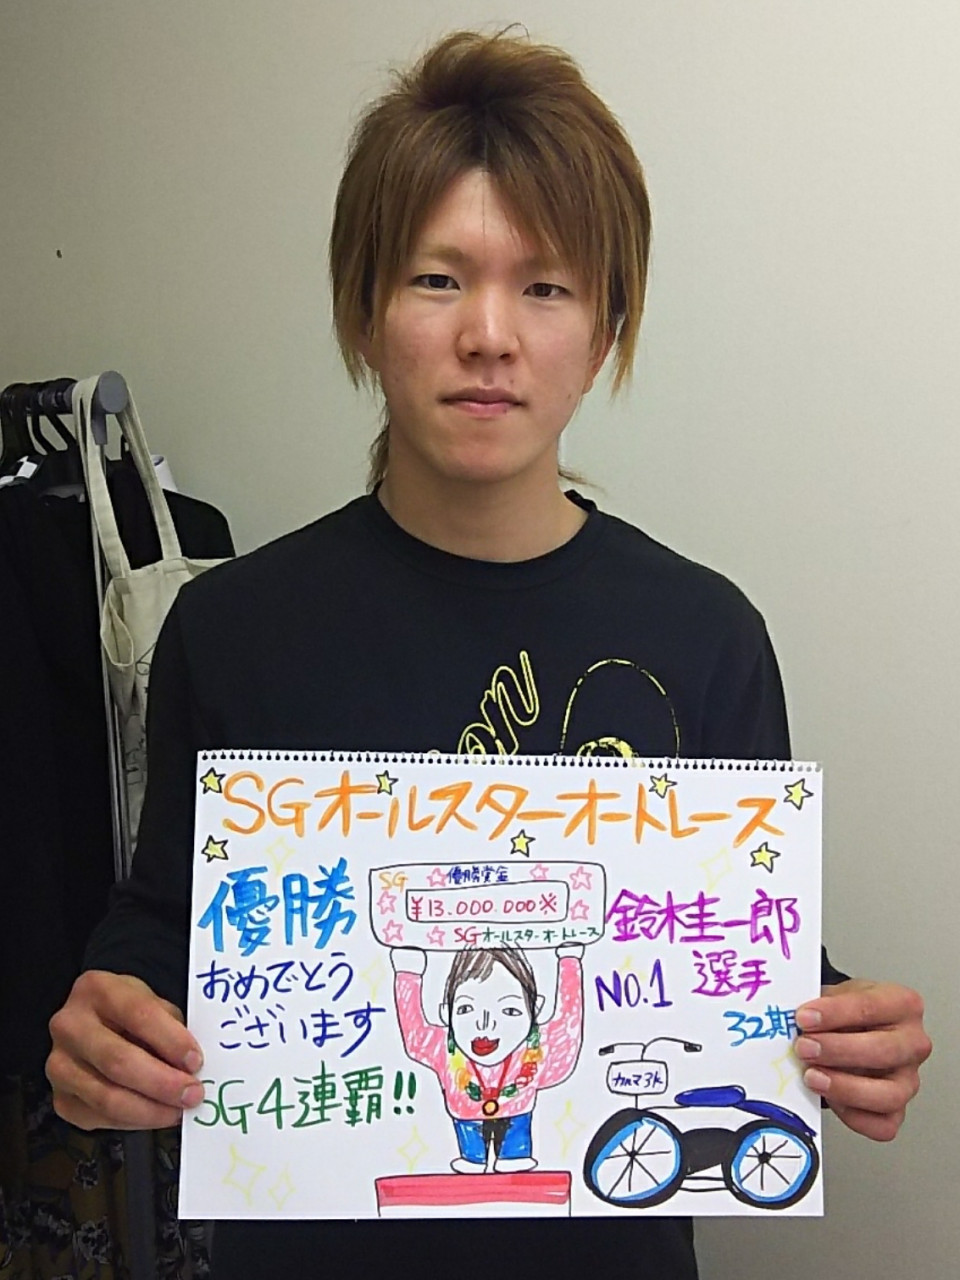 on
SGオールスターオートレース
優勝
おめでとう
ございます
SG4連覇!!
SG 優勝賞金
¥13.000.000※
SGオールスターオートレース
鈴木圭一郎
NO.1 選手
32期
カルマ3K